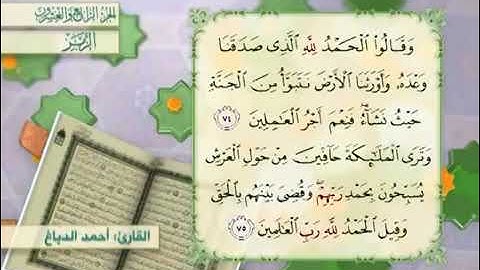 الجزء الرابع والعشرون
الزمر
وَقَالُوا۟ ٱلْحَمْدُ لِلَّهِ ٱلَّذِى صَدَقَنَا
وَعْدَهُۥ وَأَوْرَثَنَا ٱلْأَرْضَ نَتَبَوَّأُ مِنَ ٱلْجَنَّةِ
حَيْثُ نَشَآءُ ۖ فَنِعْمَ أَجْرُ ٱلْعَٰمِلِينَ ٧٤
وَتَرَى ٱلْمَلَٰٓئِكَةَ حَآفِّينَ مِنْ حَوْلِ ٱلْعَرْشِ
يُسَبِّحُونَ بِحَمْدِ رَبِّهِمْ ۖ وَقُضِىَ بَيْنَهُم بِٱلْحَقِّ
وَقِيلَ ٱلْحَمْدُ لِلَّهِ رَبِّ ٱلْعَٰلَمِينَ ٧٥
القارئ: أحمد الدباغ